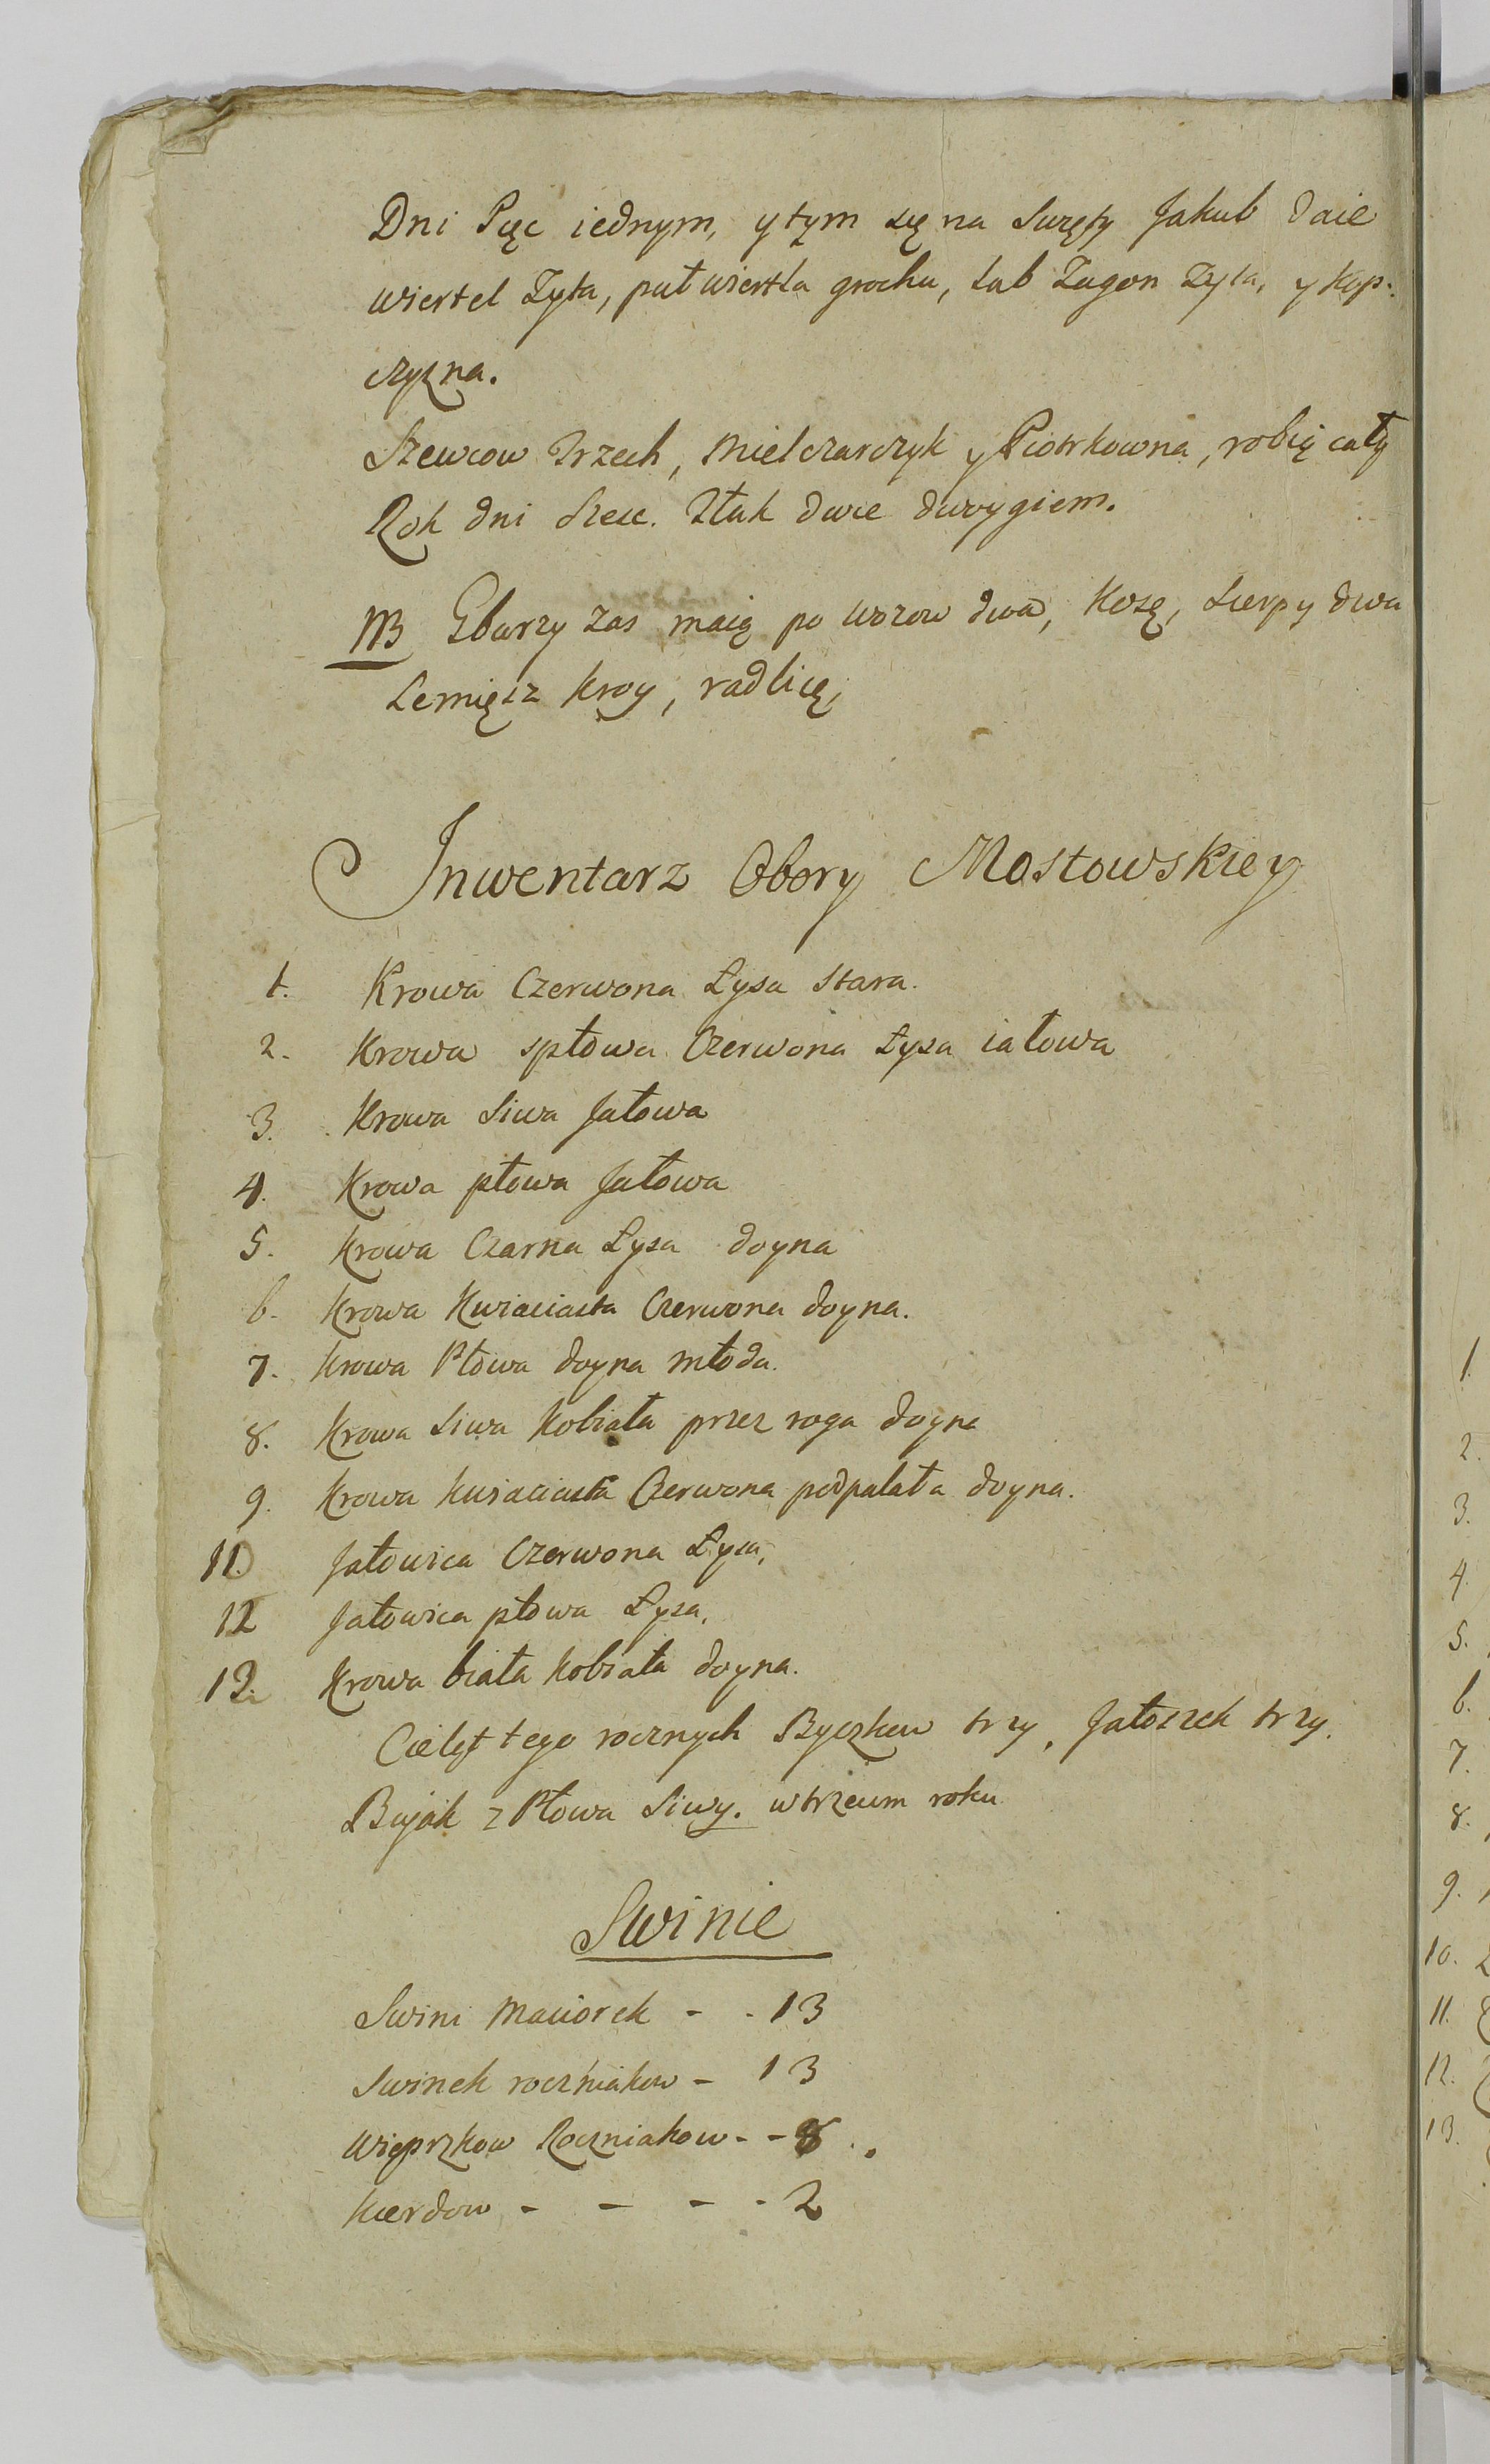 Dni Pięc iednym, y tym się na Swięty Jakub daie
wiertel Zyta, puł wiertla grochu, lub Zagon Zyta, y Kop:
czyzna.
Szewcow Trzech, Mielczarczyk y Piotrkowna, robią cały
Rok dni Szesc. Ztuk dwie dwoygiem.
NB Gburzy zas maią po Wozow dwa, Kosę, Sierpy dwa
Lemięsz Kroy, radlicę,
Inwentarz Obory Mostowskiey
1. Krowa Czerwona Łysa Stara.
2. Krowa spłowa Czerwona Łysa iałowa
3. Krowa Siwa Jałowa
4. Krowa płowa Jałowa
5. Krowa Czarna Łysa doyna
6. Krowa Kwiaciasta Czerwona doyna.
7. Krowa Płowa doyna młoda.
8. Krowa Siwa Kobiała przez roga doyna
9. Krowa kwiaciasta Czerwona podpalała doyna.
11. Jałowica Czerwona Łysa,
12 Jałowica płowa Łysa,
13. Krowa biała Kobiała doyna.
Cieląt tego rocznych Byczkow trzy, Jałoszek trzy.
Bujak z Płowa Siwy. w trzecim roku
Swinie
Swini Maciorek - - 13
Swinek roczniakow - 13
Wieprzkow Roczniakow - - 8.
Kierdow - - - - 2
1.
2.
3.
4
5.
6.
7.
8.
9.
10.
11.
12.
13.